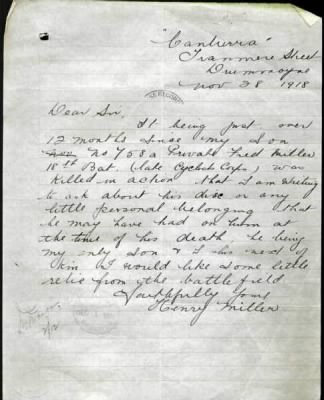 "Canberra"
Tranmere Street
Drummoyne
Nov 28 1918
Dear Sir,
It being just over
12 months since my Son
No 7582 Private Fred Miller
18th Bat. (late Cyclist Corps,) was
killed in action that I am writing
to ask about his disc or any
little personal belonging that
he may have had on him at
the time of his death he being
my only Son & I his next of
kin I would like some little
relic from the battle field
Faithfully Yours
Henry Miller